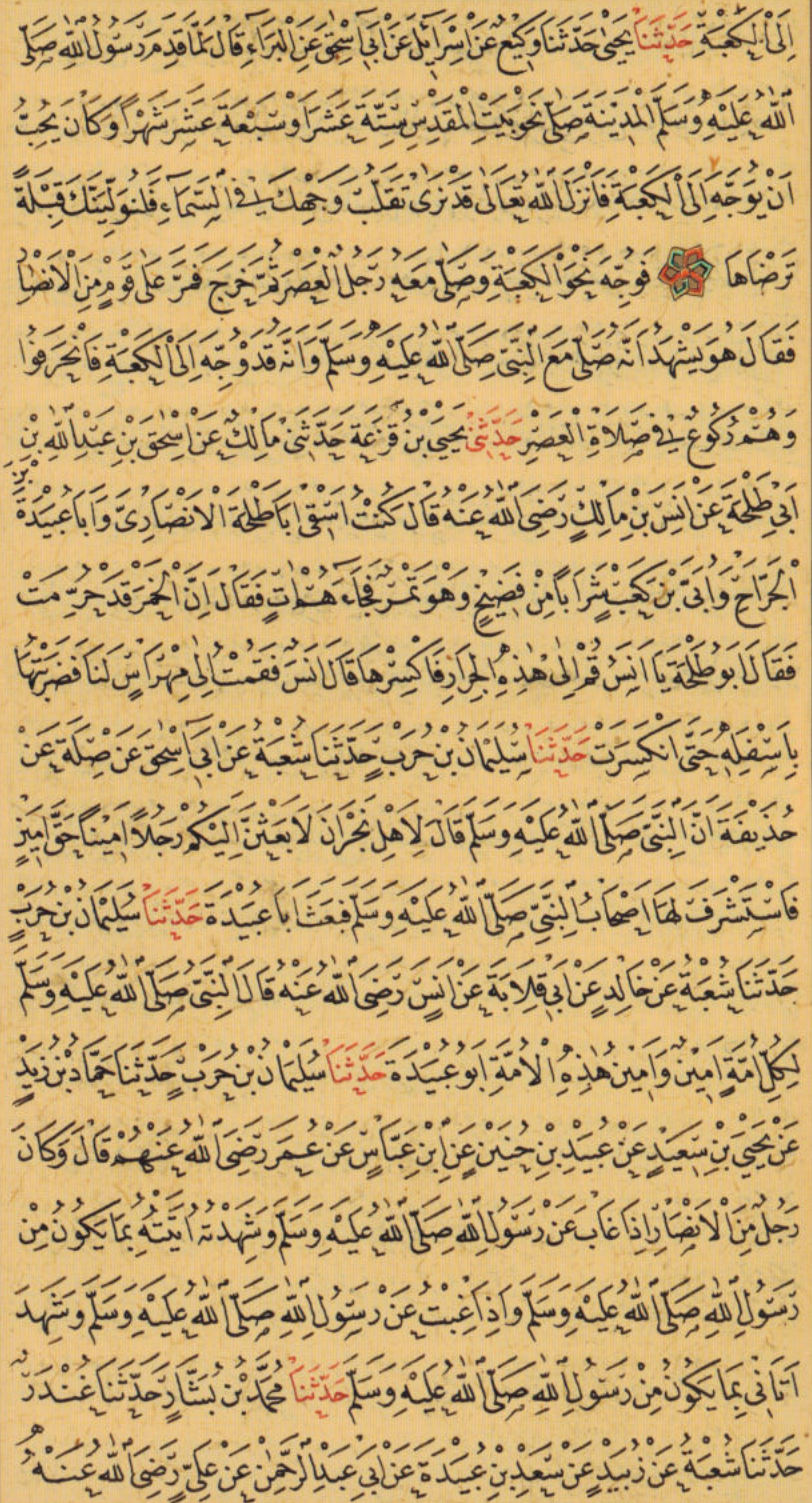 اِلَى الْكَعْبَةِ حَدَّثَنَا يَحْيٰى حَدَّثَنَا وَكِيعٌ عَنْ اِسْرَآئِلَ عَنْ اَبِي اِسْحٰقَ عَنِ الْبَرَاءِ قَالَ لَمَّا قَدِمَ رَسُولُ اللّٰهِ صَلَّى
اللّٰهُ عَلَيْهِ وَسَلَّمَ الْمَدِينَةَ صَلّٰى نَحْوَ بَيْتِ الْمَقْدِسِ سِتَّةَ عَشَرَ اَوْ سَبْعَةَ عَشَرَ شَهْرًا وَكَانَ يُحِبُّ
اَنْ يُوَجَّهَ اِلَى الْكَعْبَةِ فَاَنْزَلَ اللّٰهُ تَعَالٰى قَدْ نَرٰى تَقَلُّبَ وَجْهِكَ فِي السَّمَآءِ فَلَنُوَلِّيَنَّكَ قِبْلَةً
تَرْضَاهَا فَوُجِّهَ نَحْوَ الْكَعْبَةِ وَصَلّٰى مَعَهُ رَجُلٌ الْعَصْرَ ثُمَّ خَرَجَ فَمَرَّ عَلٰى قَوْمٍ مِنَ الْاَنْصَارِ
فَقَالَ هُوَ يَشْهَدُ اَنَّهُ صَلّٰى مَعَ النَّبِيِّ صَلَّى اللّٰهُ عَلَيْهِ وَسَلَّمَ وَاَنَّهُ قَدْ وُجِّهَ اِلَى الْكَعْبَةِ فَانْحَرَفُوا
وَهُمْ رُكُوعٌ فِي صَلَاةِ الْعَصْرِ حَدَّثَنِي يَحْيَى بْنُ قَزَعَةَ حَدَّثَنِي مَالِكٌ عَنْ اِسْحٰقَ بْنِ عَبْدِ اللّٰهِ بْنِ
اَبِي طَلْحَةَ عَنْ اَنَسِ بْنِ مَالِكٍ رَضِيَ اللّٰهُ عَنْهُ قَالَ كُنْتُ اَسْقِي اَبَا طَلْحَةَ الْاَنْصَارِيَّ وَاَبَا عُبَيْدَةَ بْنَ
الْجَرَّاحِ وَاُبَيَّ بْنَ كَعْبٍ شَرَابًا مِنْ فَضِيخٍ وَهْوَ تَمْرٌ فَجَآءَهُمْ اٰتٍ فَقَالَ اِنَّ الْخَمْرَ قَدْ حُرِّمَتْ
فَقَالَ اَبُو طَلْحَةَ يَا اَنَسُ قُمْ اِلٰى هٰذِهِ الْجِرَارِ فَاكْسِرْهَا قَالَ اَنَسٌ فَقُمْتُ اِلٰى مِهْرَاسٍ لَنَا فَضَرَبْتُهَا
بِاَسْفَلِهِ حَتَّى انْكَسَرَتْ حَدَّثَنَا سُلَيْمَانُ بْنُ حَرْبٍ حَدَّثَنَا شُعْبَةُ عَنْ اَبِي اِسْحٰقَ عَنْ صِلَةَ عَنْ
حُذَيْفَةَ اَنَّ النَّبِيَّ صَلَّى اللّٰهُ عَلَيْهِ وَسَلَّمَ قَالَ لِاَهْلِ نَجْرَانَ لَاَبْعَثَنَّ اِلَيْكُمْ رَجُلًا اَمِينًا حَقَّ اَمِينٍ
فَاسْتَشْرَفَ لَهَا اَصْحَابُ النَّبِيِّ صَلَّى اللّٰهُ عَلَيْهِ وَسَلَّمَ فَبَعَثَ اَبَا عُبَيْدَةَ حَدَّثَنَا سُلَيْمَانُ بْنُ حَرْبٍ
حَدَّثَنَا شُعْبَةُ عَنْ خَالِدٍ عَنْ اَبِي قِلَابَةَ عَنْ اَنَسٍ رَضِيَ اللّٰهُ عَنْهُ قَالَ النَّبِيُّ صَلَّى اللّٰهُ عَلَيْهِ وَسَلَّمَ
لِكُلِّ اُمَّةٍ اَمِينٌ وَاَمِينُ هٰذِهِ الْاُمَّةِ اَبُو عُبَيْدَةَ حَدَّثَنَا سُلَيْمَانُ بْنُ حَرْبٍ حَدَّثَنَا حَمَّادُ بْنُ زَيْدٍ
عَنْ يَحْيَى بْنِ سَعِيدٍ عَنْ عُبَيْدِ بْنِ حُنَيْنٍ عَنِ ابْنِ عَبَّاسٍ عَنْ عُمَرَ رَضِيَ اللّٰهُ عَنْهُمْ قَالَ وَكَانَ
رَجُلٌ مِنَ الْاَنْصَارِ اِذَا غَابَ عَنْ رَسُولِ اللّٰهِ صَلَّى اللّٰهُ عَلَيْهِ وَسَلَّمَ وَشَهِدْتُهُ اَتَيْتُهُ بِمَا يَكُونُ مِنْ
رَسُولِ اللّٰهِ صَلَّى اللّٰهُ عَلَيْهِ وَسَلَّمَ وَاِذَا غِبْتُ عَنْ رَسُولِ اللّٰهِ صَلَّى اللّٰهُ عَلَيْهِ وَسَلَّمَ وَشَهِدَ
اَتَانِي بِمَا يَكُونُ مِنْ رَسُولِ اللّٰهِ صَلَّى اللّٰهُ عَلَيْهِ وَسَلَّمَ حَدَّثَنَا مُحَمَّدُ بْنُ بَشَّارٍ حَدَّثَنَا غُنْدَرٌ
حَدَّثَنَا شُعْبَةُ عَنْ زُبَيْدٍ عَنْ سَعْدِ بْنِ عُبَيْدَةَ عَنْ اَبِي عَبْدِ الرَّحْمٰنِ عَنْ عَلِيٍّ رَضِيَ اللّٰهُ عَنْهُ